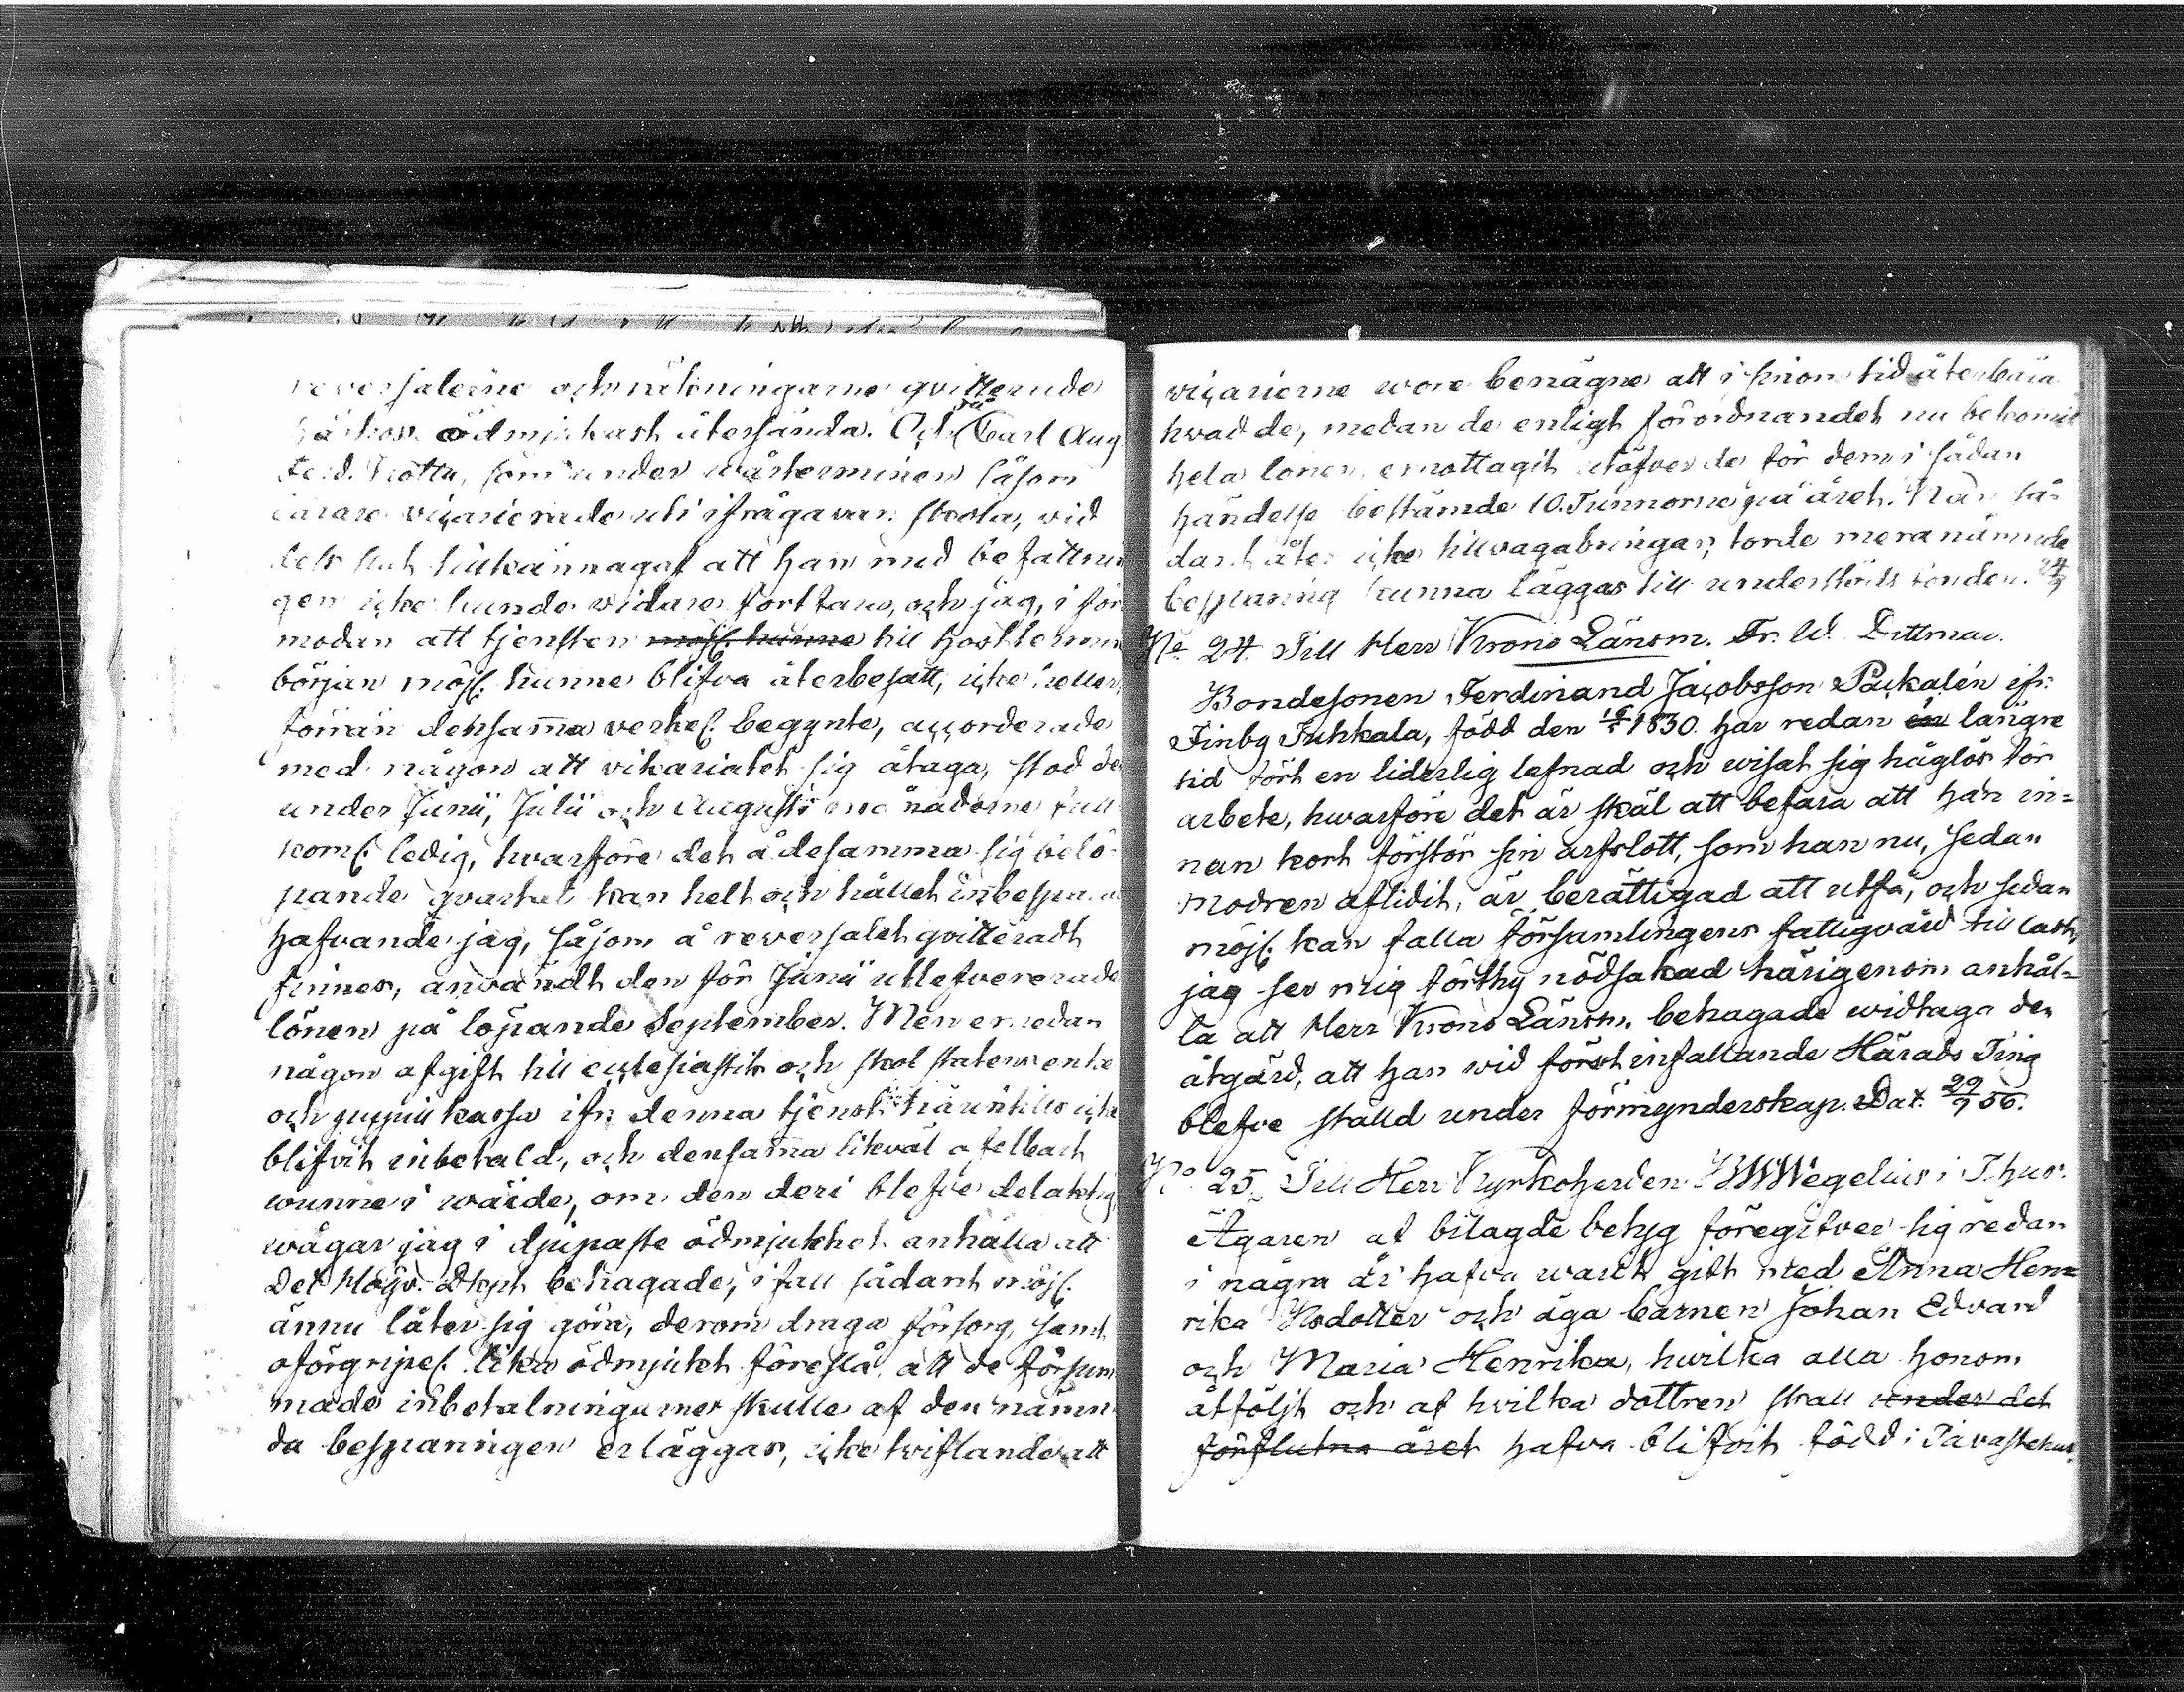 reversalerne och räkningarne qvitterade
härhos ödmjukast återsända. Och då Carl Aug.
Ferd. som under wårterminen såsom
lärare vicarierade uti ifrågavar. skola, wid
dess slut tillkännagaf att han med befattnin
gen icke kunde widare fortfara, och jag, i för
modan att tjensten möjl. kunne till höstterminens
början möjl. kunne blifva återbesatt, icke heller,
förrän densamma verkel. begynte, accorderade
med någon att vikariatet sig åtaga, stod den
under Junii, Julii och Augusti månaderne full
koml. ledig, hwarföre det å desamma sig belö-
pande qvartal kan helt och hållet inbesparas
hafvande jag, såsom å reversalet qvitteradt
finnes, användt den för Junii utlefvererade
lönen på löpande September. Men emedan
någon afgift till ecclesiastik och skol statens enke
och pupill kassa ifn denna tjenst härintills icke
blifvit inbetald, och densamma likväl ofelbart
wunne i wärde, om den deri blefve delaktig,
wågar jag i djupaste ödmjukhet anhålla att
Det Högv. Dkpt behagade, ifall sådant möjl.
ännu låter sig göra, derom draga försorg, samt
oförgripel. lika ödmjukt föreslå, att de försum
made inbetalningarne skulle af den nämn
da besparingen erläggas, icke twiflande att
vicarierne wore benägne att i sinom tid återbära
hwad de, medan de enligt förordnandet nu bekommit
hela lönen, emottagit utöfver de för dem i sådan
händelse bestämde 10. Tunnorne på året. När så-
dant åter icke tillvägabringas, torde mera nämnde
besparing kunna läggas till understöds fonden.
No. 24. Till Herr Krono Länsm. Fr. W. Dittmar.
Bondesonen Ferdinand Jacobsson Packalén ifr.
Finby Juhkala, född den 1830. har redan en längre
tid fört en liderlig lefnad och wisat sig håglös för
arbete, hwarföre det är skäl att befara att han in-
nan kort förstör sin arfslott, som han nu, sedan
modren aflidit, är berättigad att utfå, och sedan
möjl. kan falla församlingens fattigvård till last,
jag ser mig förthy nödsakad härigenom anhål-
la att Herr Krono Länsm. behagade widtaga den
åtgärd, att han wid först infallande Härads Ting
blefve ställd under förmynderskap. Dat. 29/9 56.
No 25. Till Herr Kyrkoherden Wegelius i T:hus.
Ägaren af bilagde betyg föregifver sig redan
i några år hafva warit gift med Anna Hen-
rika dotter och äga barnen Johan Edvard
och Maria Henrika, hwilka alla honom
åtföljt och af hwilka dottren skall under det
förflutna året hafva blifvit född i Tavastehus,